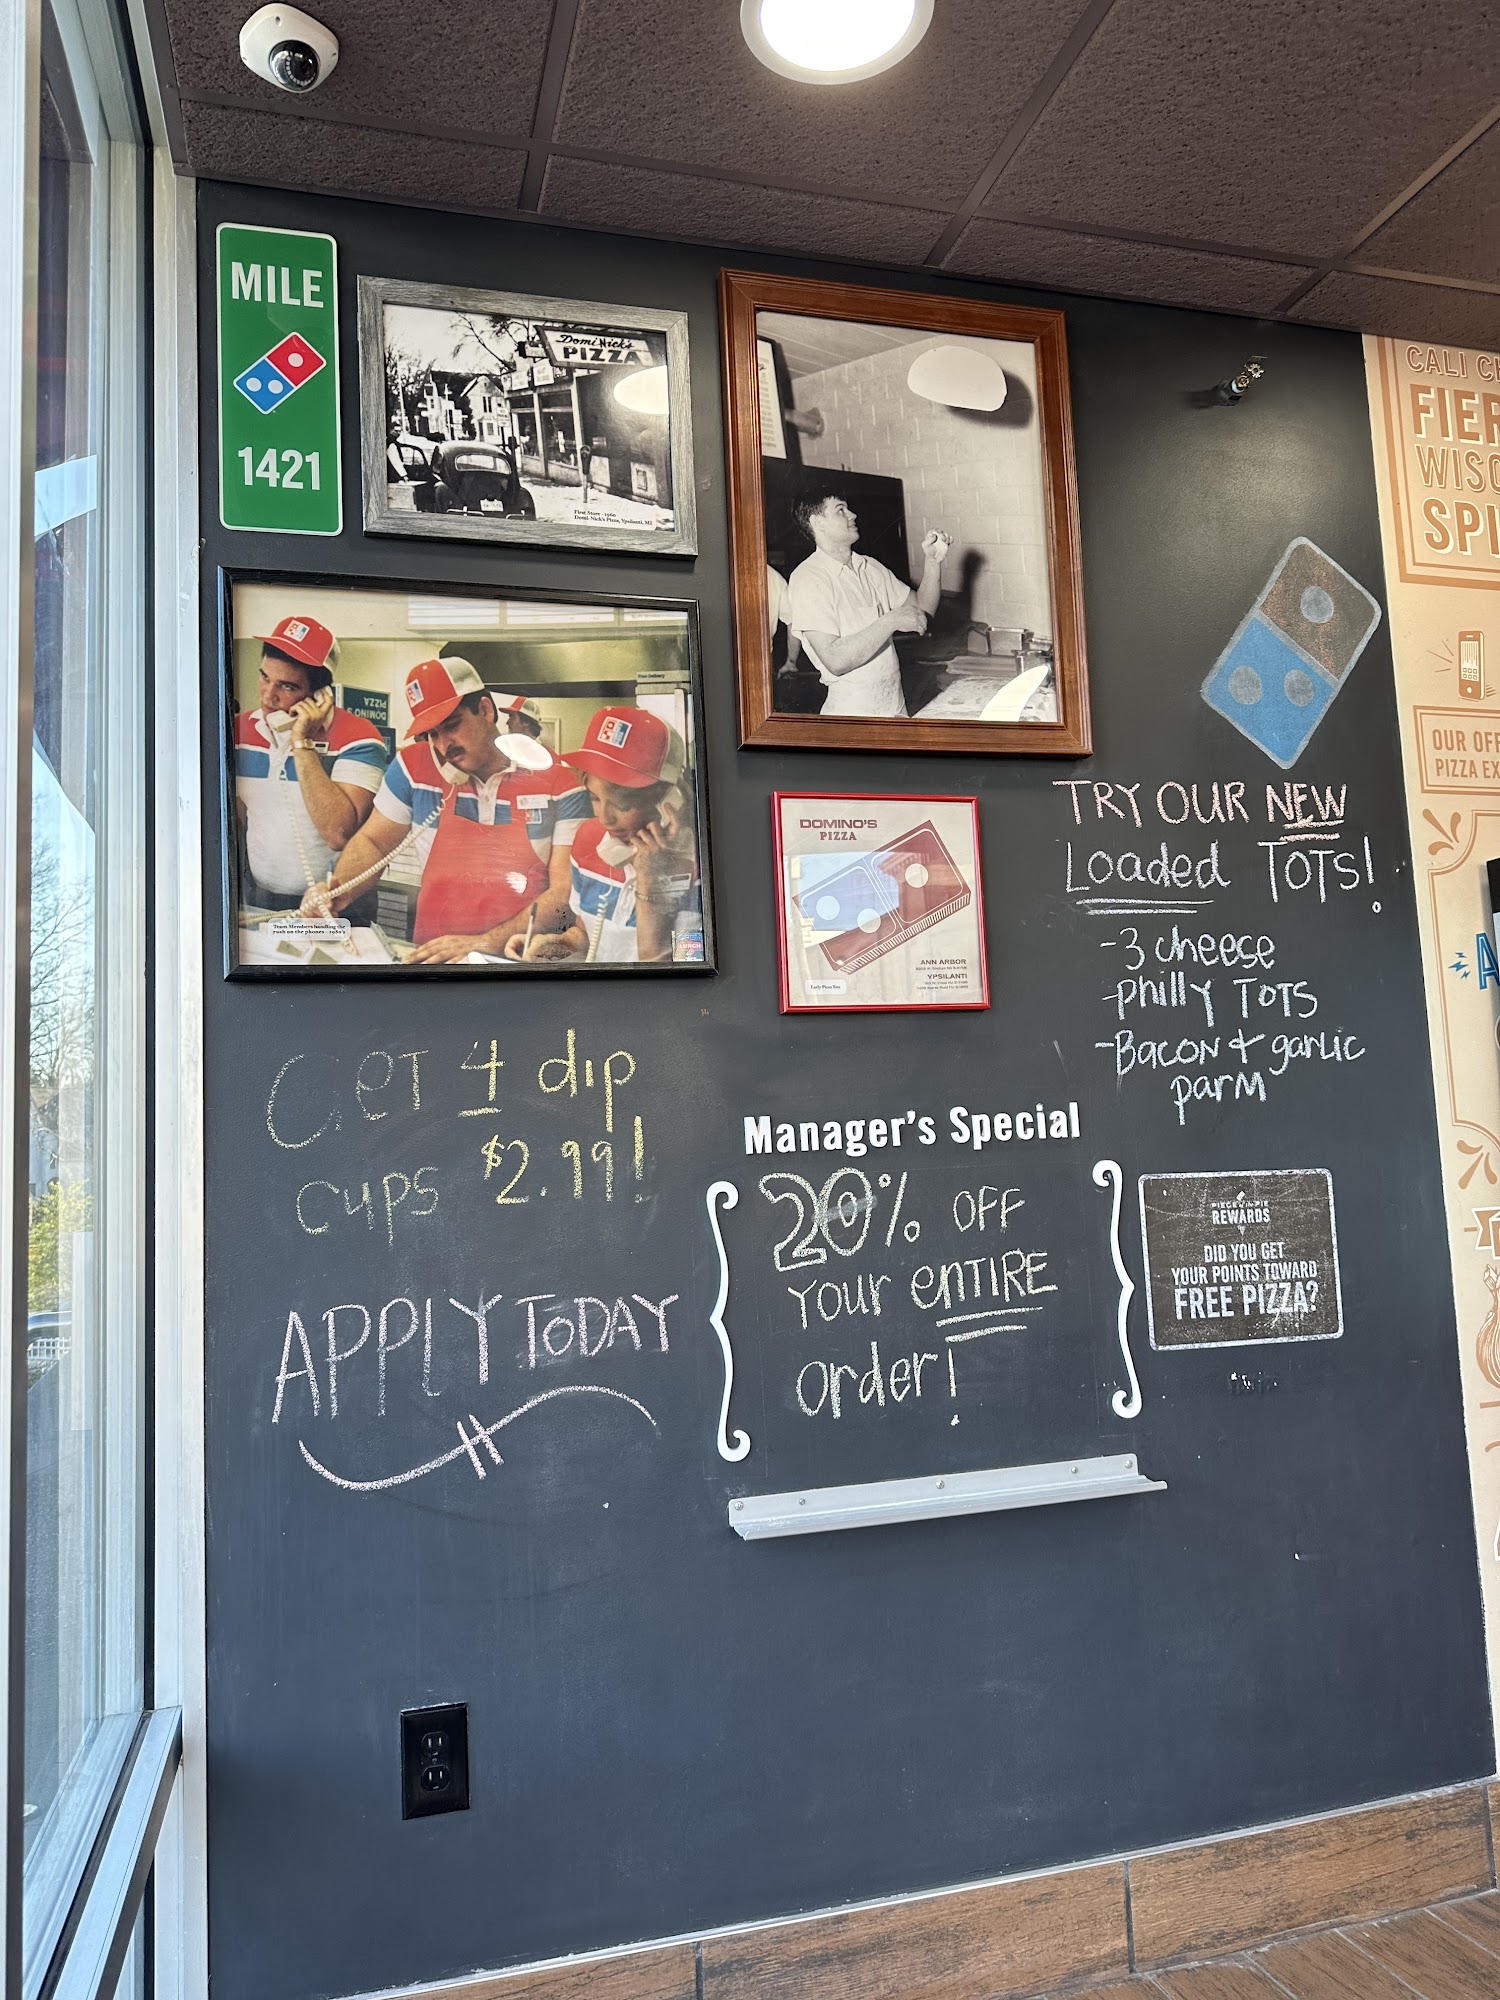 MILE
1421
Domi-Nick's
PIZZA
First Store - 1960
Domi-Nick's Pizza, Ypsilanti, MI
DOMINO'S
PIZZA
Free Delivery
Team Members handling the
rush on the phones - 1980's
LUNCH
DOMINO'S
PIZZA
ANN ARBOR
YPSILANTI
Early Pizza Box
CALI
FIER
WISC
SPI
OUR OFF
PIZZA EX
TRY OUR NEW
Loaded TOTS!
-3 cheese
-philly TOTS
-Bacon & garlic
parm
GET 4 dip
cups $2.99!
APPLY TODAY
Manager's Special
20% OFF
your ENTIRE
order!
PIECE OF THE PIE
REWARDS
DID YOU GET
YOUR POINTS TOWARD
FREE PIZZA?